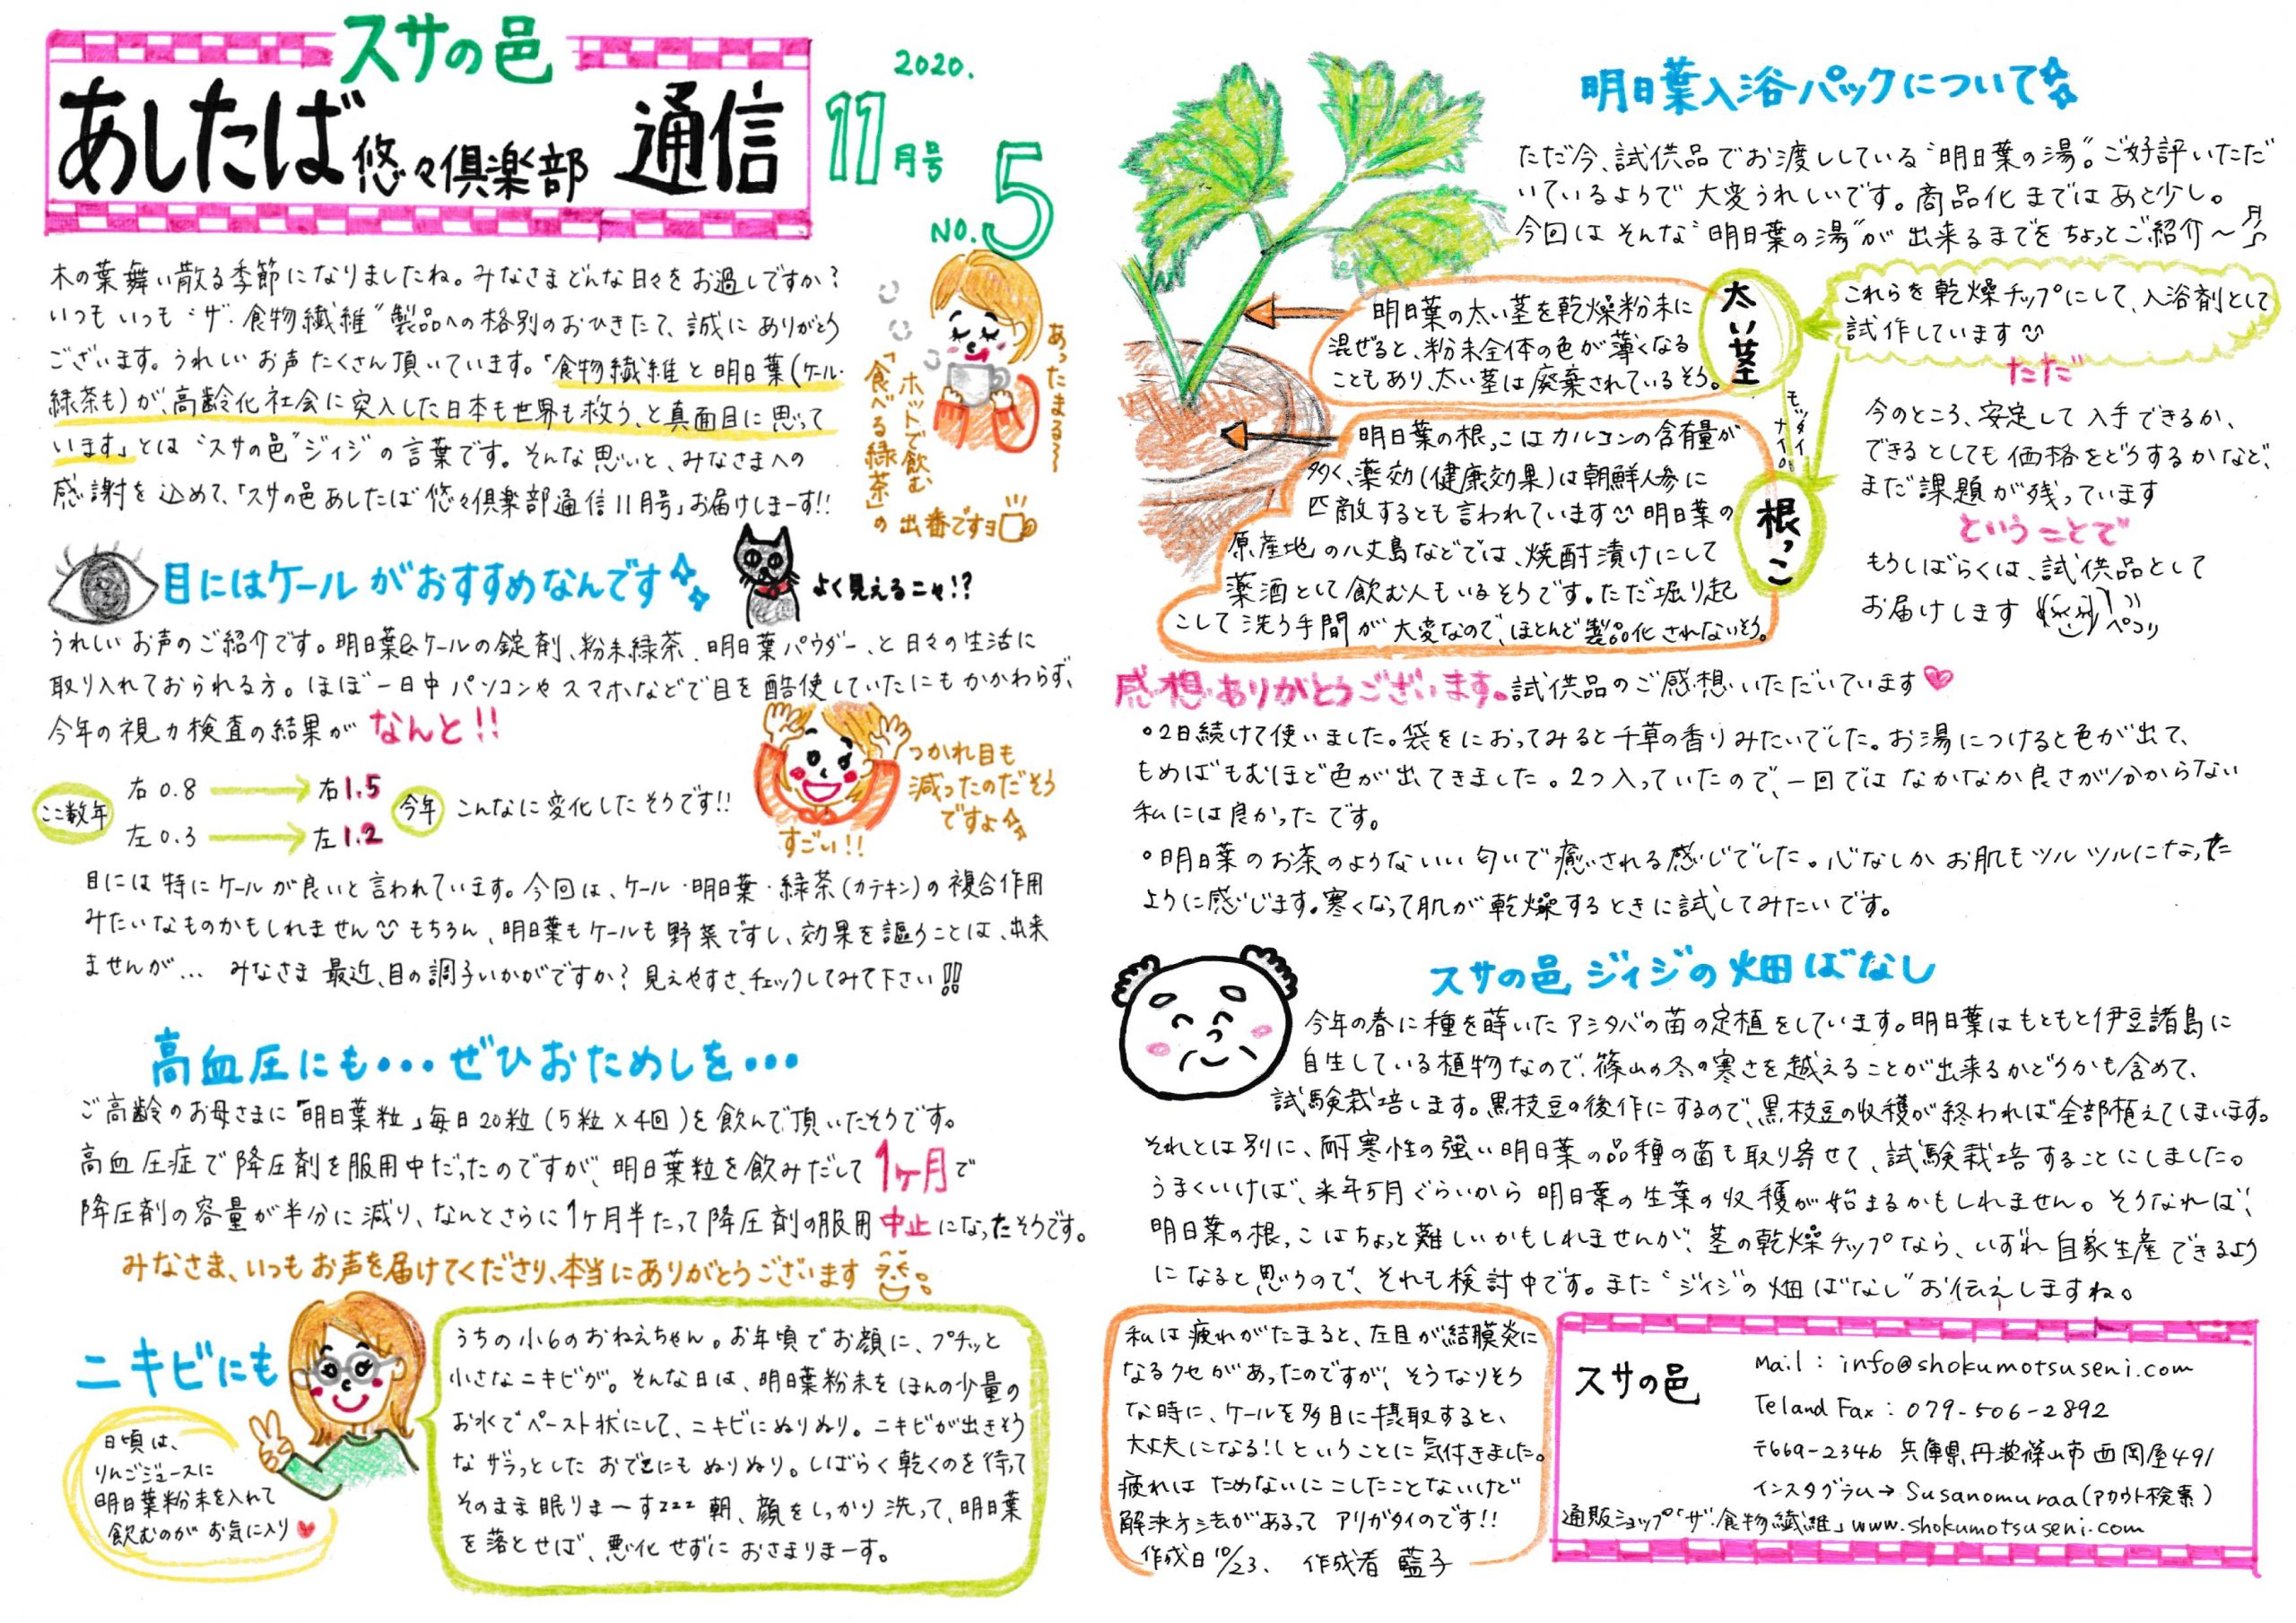 スサの邑
あしたば悠々倶楽部 通信
2020.
11月号
NO.5
木の葉舞い散る季節になりましたね。みなさまどんな日々をお過しですか？
いつもいつも“ザ・食物繊維”製品への格別のおひきたて、誠にありがとう
ございます。うれしいお声たくさん頂いています。「食物繊維と明日葉(ケール・
緑茶も)が、高齢化社会に突入した日本も世界も救う、と真面目に思って
います」とは“スサの邑”ジィジ”の言葉です。そんな思いと、みなさまへの
感謝を込めて、「スサの邑あしたば悠々倶楽部通信11月号」お届けしまーす!!
あったまる〜
ホットで飲む
「食べる緑茶」の
出番ですヨ
目にはケールがおすすめなんです
よく見えるニャ!?
うれしいお声のご紹介です。明日葉&ケールの錠剤、粉末緑茶、明日葉パウダー、と日々の生活に
取り入れておられる方。ほぼ一日中パソコンやスマホなどで目を酷使していたにもかかわらず、
今年の視力検査の結果が なんと!!
ここ数年
右0.8 → 右1.5
左0.3 → 左1.2
今年
こんなに変化したそうです!!
すごい!!
つかれ目も
減ったのだそう
ですよ
目には特にケールが良いと言われています。今回は、ケール・明日葉・緑茶(カテキン)の複合作用
みたいなものかもしれません もちろん、明日葉もケールも野菜ですし、効果を謳うことは、出来
ませんが… みなさま最近、目の調子いかがですか？見えやすさ、チェックしてみて下さい!!
高血圧にも・・・ぜひおためしを・・・
ご高齢のお母さまに「明日葉粒」毎日20粒(5粒×4回)を飲んで頂いたそうです。
高血圧症で降圧剤を服用中だったのですが、明日葉粒を飲みだして1ヶ月で
降圧剤の容量が半分に減り、なんとさらに1ヶ月半たって降圧剤の服用中止になったそうです。
みなさま、いつもお声を届けてくださり、本当にありがとうございます
ニキビにも
日頃は、
りんごジュースに
明日葉粉末を入れて
飲むのがお気に入り
うちの小6のおねえちゃん。お年頃でお顔に、プチッと
小さなニキビが。そんな日は、明日葉粉末をほんの少量の
お水でペースト状にして、ニキビにぬりぬり。ニキビが出きそう
なザラっとしたおでこにもぬりぬり。しばらく乾くのを待って
そのまま眠りまーすzzz 朝、顔をしっかり洗って、明日葉
を落とせば、悪化せずにおさまりまーす。
明日葉入浴パックについて
ただ今、試供品でお渡ししている“明日葉の湯”。ご好評いただ
いているようで大変うれしいです。商品化まではあと少し。
今回はそんな“明日葉の湯”が出来るまでをちょっとご紹介〜♬
明日葉の太い茎を乾燥粉末に
混ぜると、粉末全体の色が薄くなる
こともあり、太い茎は廃棄されているそう。
太い茎
モッタイナイ。
明日葉の根っこはカルコンの含有量が
多く、薬効(健康効果)は朝鮮人参に
匹敵するとも言われています 明日葉の
原産地の八丈島などでは、焼酎漬けにして
薬酒として飲む人もいるそうです。ただ堀り起
こして洗う手間が大変なので、ほとんど製品化されないそう。
根っこ
これらを乾燥チップにして、入浴剤として
試作しています
ただ
今のところ、安定して入手できるか、
できるとしても価格をどうするかなど、
まだ課題が残っています
ということで
もうしばらくは、試供品として
お届けします
ペコリ
感想ありがとうございます。試供品のご感想いただいています
○2日続けて使いました。袋をにおってみると干草の香りみたいでした。お湯につけると色が出て、
もめばもむほど色が出てきました。2つ入っていたので、一回ではなかなか良さが分からない
私には良かったです。
○明日葉のお茶のようないい匂いで癒される感じでした。心なしかお肌もツルツルになった
ように感じます。寒くなって肌が乾燥するときに試してみたいです。
スサの邑 ジィジの畑ばなし
今年の春に種を蒔いたアシタバの苗の定植をしています。明日葉はもともと伊豆諸島に
自生している植物なので、篠山の冬の寒さを越えることが出来るかどうかも含めて、
試験栽培します。黒枝豆の後作にするので、黒枝豆の収穫が終われば全部植えてしまいます。
それとは別に、耐寒性の強い明日葉の品種の苗も取り寄せて、試験栽培することにしました。
うまくいけば、来年5月ぐらいから明日葉の生葉の収穫が始まるかもしれません。そうなれば、
明日葉の根っこはちょっと難しいかもしれませんが、茎の乾燥チップなら、いずれ自家生産できるよう
になると思うので、それも検討中です。また“ジィジの畑ばなし”お伝えしますね。
私は疲れがたまると、左目が結膜炎に
なるクセがあったのですが、そうなりそう
な時に、ケールを多目に摂取すると、
大丈夫になる!ということに気付きました。
疲れはためないにこしたことないけど
解決方法があるって アリガタイのです!!
作成日10/23. 作成者 藍子
スサの邑
Mail : info@shokumotsuseni.com
Tel and Fax : 079-506-2892
〒669-2346 兵庫県丹波篠山市西岡屋491
インスタグラム→ Susanomuraa(アカウト検索)
通販ショップ「ザ・食物繊維」www.shokumotsuseni.com